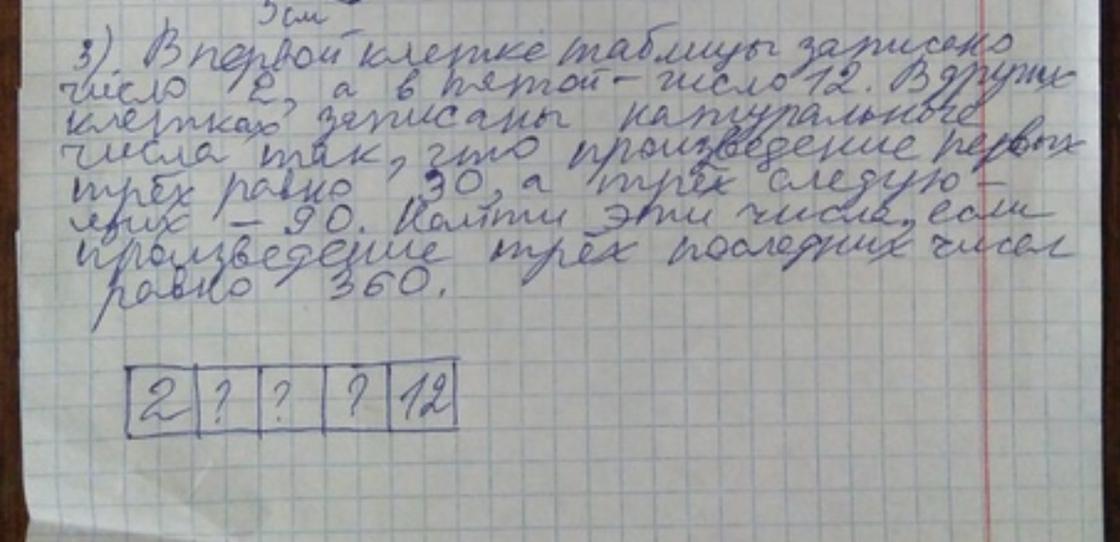 5 см
3) В первой клетке таблицы записано
число 2, а в пятой – число 12. В других
клетках записаны натуральные
числа так, что произведение первых
трёх равно 30, а трёх следую-
щих – 90. Найти эти числа, если
произведение трёх последних чисел
равно 360.
2 ? ? ? 12